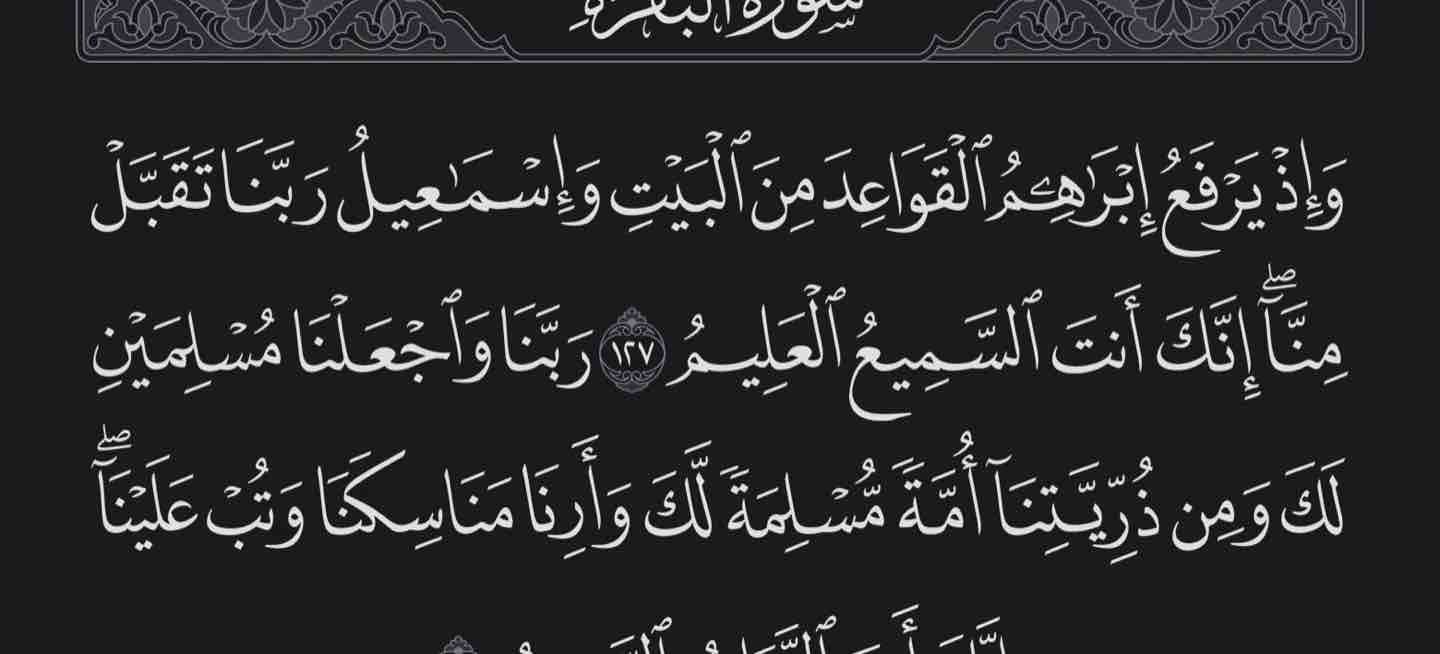 سورة البقرة
وَإِذْ يَرْفَعُ إِبْرَٰهِـۧمُ ٱلْقَوَاعِدَ مِنَ ٱلْبَيْتِ وَإِسْمَـٰعِيلُ رَبَّنَا تَقَبَّلْ
مِنَّآ ۖ إِنَّكَ أَنتَ ٱلسَّمِيعُ ٱلْعَلِيمُ ١٢٧ رَبَّنَا وَٱجْعَلْنَا مُسْلِمَيْنِ
لَكَ وَمِن ذُرِّيَّتِنَآ أُمَّةً مُّسْلِمَةً لَّكَ وَأَرِنَا مَنَاسِكَنَا وَتُبْ عَلَيْنَآ ۖ